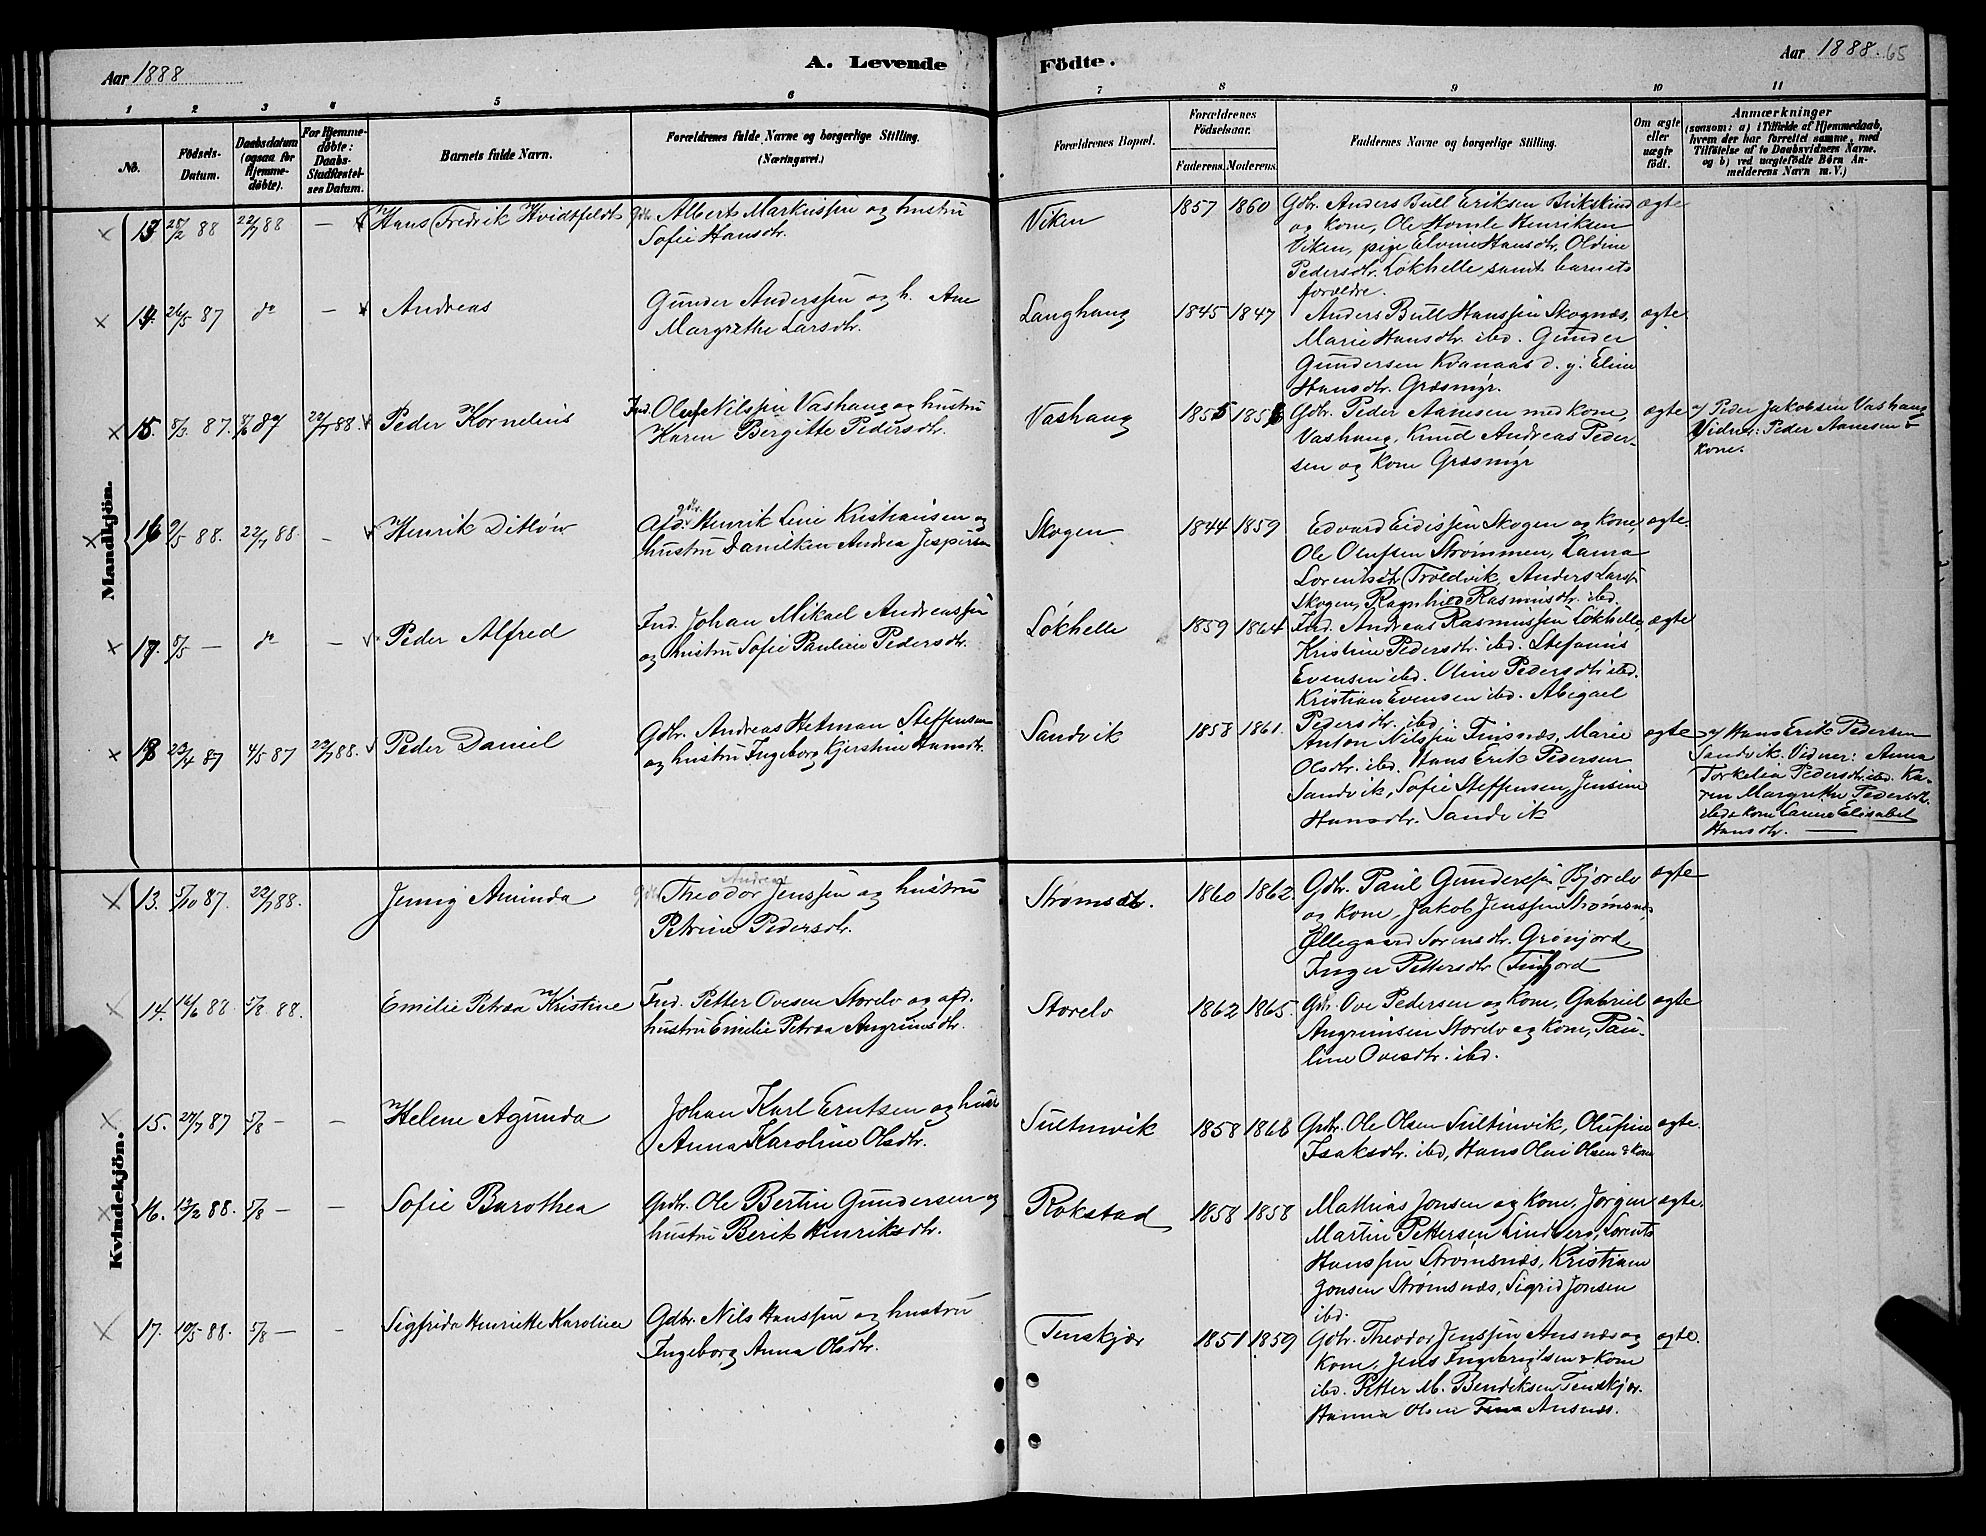 Aar 1888
A. Levende
Födte.
Aar 1888. 65
1 2 3 4 5 6 7 8 9 10 11
No.
Födsels-
Datum.
Daabsdatum
(ogsaa for
Hjemme-
döbte).
For Hjemme-
döbte:
Daabs-
Stadfæstel-
ses Datum.
Barnets fulde Navn.
Forældrenes fulde Navne og borgerlige Stilling.
(Næringsvei.)
Forældrenes Bopæl.
Forældrenes
Födselsaar.
Faderens. Moderens.
Faddernes Navne og borgerlige Stilling.
Om ægte
eller
uægte
födt.
Anmærkninger
(saasom: a) i Tilfælde af Hjemmedaab,
hvem der har forrettet samme, med
Tilföielse af to Daabsvidners Navne.
og b) ved uægtefödte Börn An-
melderens Navn m. V.)
Mandkjön.
13 28/2 88 22/7 88 — Hans Fredrik Hvidtfeldt
Gdbr. Albert Markussen og hustru
Sofie Hansdtr.
Viken 1857 1860
Gdbr. Anders Bull Eriksen Birkskind
og kone, Ole Homle Henriksen
Viken, pige Elvine Hansdtr, Oldine
Pedersdtr. Løkhelle samt barnets
forældre.
ægte
14. 26/5 87 do — Andreas
Gunder Anderssen og h. Ane
Margrethe Larsdtr.
Langhang 1845 1847
Anders Bull Hanssen Skognæs,
Marie Hansdtr. ibd. Gunder
Gundersen Kvanaas d. y. Eline
Hansdtr. Græsmyr.
ægte.
15. 8/3 87. 87 22/7 88. Peder Kornelius
Ind. Oluf Nilssen Vashaug og hustru
Karen Bergitte Pedersdtr.
Vashaug 1855 185
Gdbr. Peder Aamesen med kone,
Vashaug, Knud Andreas Peder-
sen og kone Græsmyr
ægte
a/ Peder Jakobsen Vashaug
Vidner: Peder Aamesen &
kone.
16 9/5 88. 22/7 88. — Henrik Ditløv
Afd. gdbr. Henrik Leni Kristiansen og
hustru Danilken Andrea Jespersen
Skogen 1844 1859
Edvard Eidissen Skogen og kone,
Ole Olufsen Strømmen, Laura
Lorentsdtr Troldvik, Anders Larss.
Skogen, Ragnhild Rasmusdtr. ibd.
ægte
17. 5/5 — do — Peder Alfred
Ind. Johan Mikael Andreassen
og hustru Sofie Pauline Pedersdtr.
Løkhelle 1859 1864
Ind. Andreas Rasmussen Løkhelle,
Kristine Pedersdtr. ibd. Stefanus
Evensen ibd. Oline Pedersdtr ibd.
Kristian Evensen ibd. Abigael
Pedersdtr. ibd.
ægte
18 23/4 87 4/5 87 22/7 88. Peder Daniel
Gdbr. Andreas Hetman Steffensen
og hustru Ingeborg Kjerstine Hansdtr.
Sandvik 1858 1861.
Anton Nilssen Finsnæs, Marie
Olsdtr. ibd. Hans Erik Pedersen
Sandvik, Sofie Steffensen, Jensine
Hansdtr. Sandvik
ægte
a/ Hans Erik Pedersen
Sandvik. Vidner: Anna
Torkelia Pedersdtr. ibd. Ka-
ren Margrethe Pedersdtr.
ibd & kone Larine Elisabet
Hansdtr.
Kvindekjön.
13. 5/10 87. 22/7 88. Jenny Aminda
Gdbr. Theodor Andreas Jenssen og hustru
Petrine Pedersdtr.
Strømsdt. 1860 1862.
Gdbr. Paul Gunderssen Bjorelv
og kone, Jakob Jenssen Strømsnæs
Øllegaard Sorensdtr. Grønjord,
Inger Pettersdtr Finfjord
ægte
14. 16/6 88 5/8. 88. Emilie Petrea Kristine
Ind. Petter Ovesen Storelv og afd.
hustru Emilie Petrea Angrimsdtr.
Storelv 1862 1865.
Gdbr. Ove Pedersen og kone, Gabriel
Angrimsen Storelv og kone, Pau-
line Ovesdtr. ibd.
ægte
15. 27/7 87 5/8 — — Helene Agunda
Johan Karl Erntsen og hustr.
Anna Karoline Olsdtr.
Sultinvik 1858 1868
Gdbr. Ole Olsen Sultinvik, Olufine
Isaksdtr. ibd, Hans Olai Olsen & kone
ægte.
16. 13/2 88. 5/8 — — Sofie Barothea
Gdbr. Ole Bertin Gundersen og
hustru Berit Henriksdtr.
Rokstad 1858 1858
Mathias Jonsen og kone, Jørgen
Martin Pettersen Lindberg, Lorents
Hanssen Strømsnæs, Kristiane
Jonsen Strømsnæs, Sigrid Jonsen
ibd.
ægte.
17. 19/5 88. 5/8 — — Sigfrida Henriette Karoline
Gdbr. Nils Hanssen og hustru
Ingeborg Anna Olsdtr.
Tenskjær 1851 1859
Gdbr. Theodor Jenssen Ansnæs og
kone, Jens Ingebrigtsen & kone
ibd. Petter M. Bendiksen Tenskjær.
Hanna Olsen Ansnæs.
ægte.